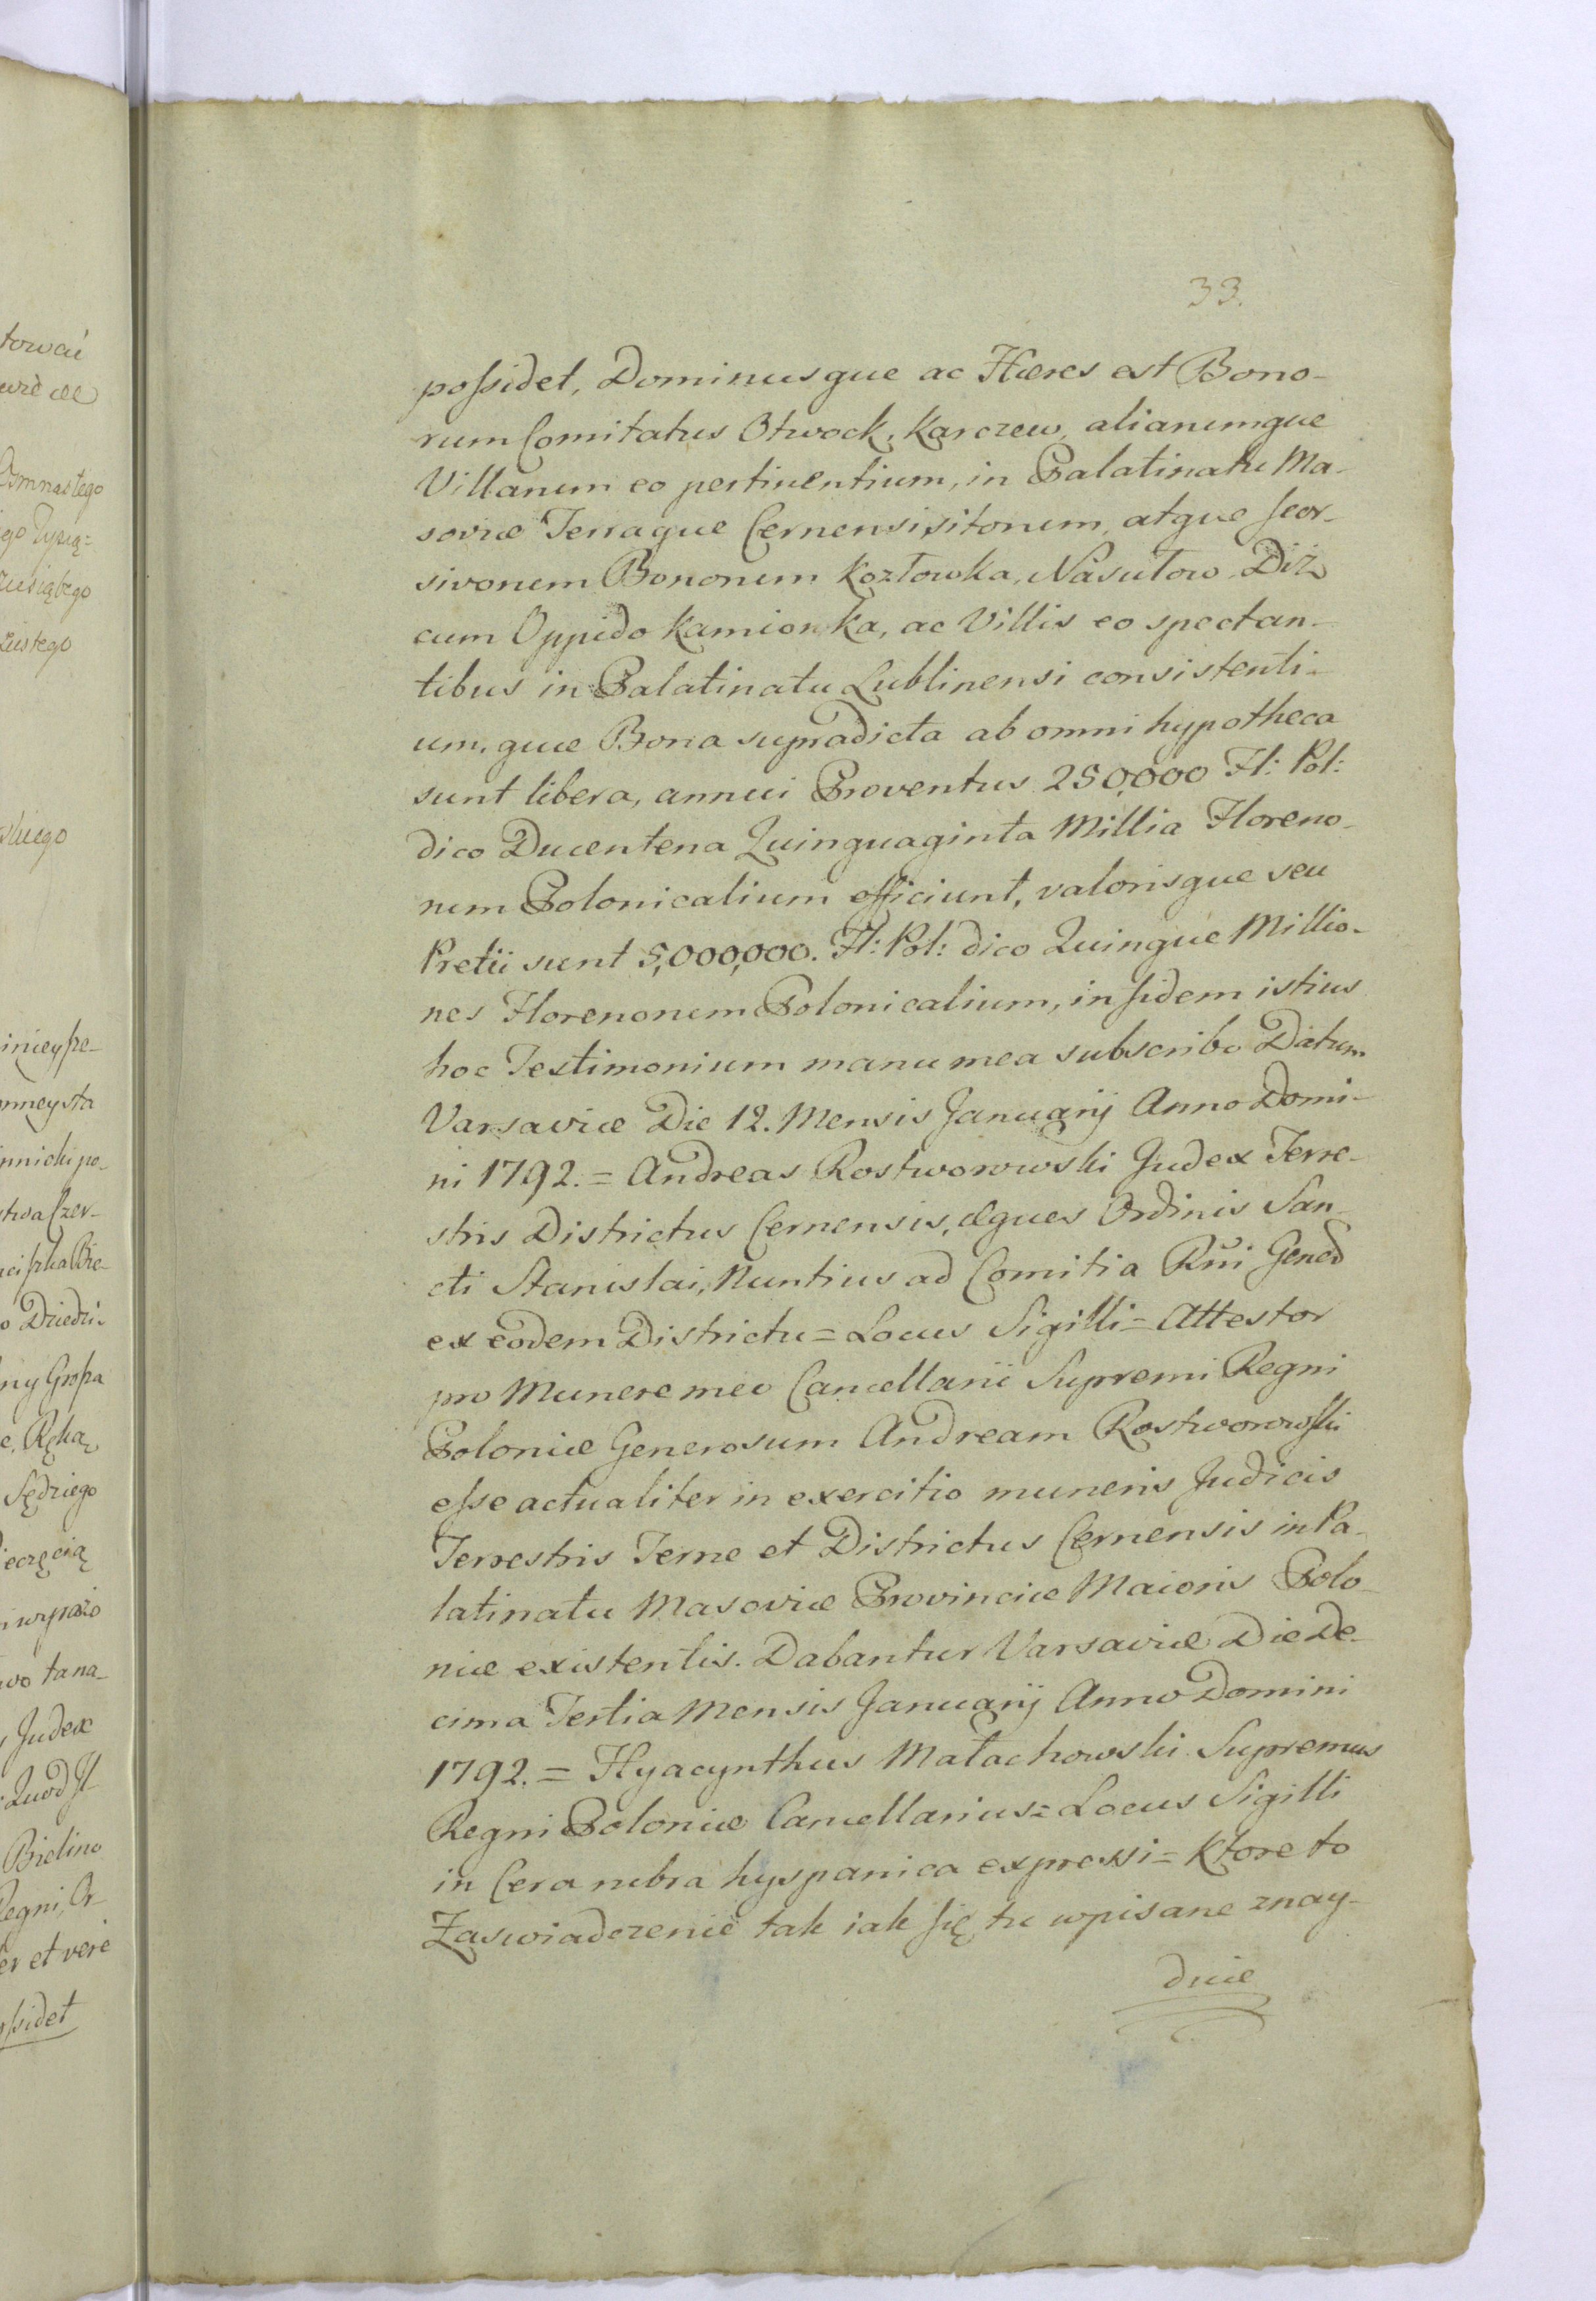 33.
possidet, Dominusque ac Hæres est Bono-
rum Comitatus Otwock, Karczew, aliarumque
Villarum eo pertinentium, in Palatinatu Ma-
soviæ Terraque Cernensi sitorum, atque seor-
sivorum Bonorum Kozłowka, Nasutow, Diż
cum Oppido Kamionka, ac Villis eo spectan-
tibus in Palatinatu Lublinensi consistenti-
um, quæ Bona supradicta ab omni hypotheca
sunt libera, annui Proventus 250,000 Fl: Pol:
dico Ducentena Quinquaginta Millia Floreno-
rum Polonicalium efficiunt, valorisque seu
Pretii sunt 5,000,000. Fl: Pol: dico Quinque Millio-
nes Florenorum Polonicalium, in fidem istius
hoc Testimonium manu mea subscribo Datum
Varsaviæ Die 12. Mensis Januarij Anno Domi-
ni 1792. = Andreas Rostworowski Judex Terre-
stris Districtus Cernensis, æques Ordinis San-
cti Stanislai, Nuntius ad Comitia Rñi Gened
ex eodem Districtu = Locus Sigilli = Attestor
pro Munere meo Cancellarii Supremi Regni
Poloniæ Generosum Andream Rostworowski
esse actualiter in exercitio muneris Judicis
Terrestris Terræ et Districtus Cernensis in Pa-
latinatu Masoviæ Provinciæ Maioris Polo-
niæ existentis. Dabantur Varsaviæ Die De-
cima Tertia Mensis Januarij Anno Domini
1792. = Hyacynthus Małachowski Supremus
Regni Poloniæ Cancellarius = Locus Sigilli
in Cera rubra hyspanica expressi = Ktore to
Zaswiadczenie tak iak się tu wpisane znay-
duie
towai
Osmnastego
zustego
skiego
Dziedzi-
Sędziego
Judex
Quod
Bielino
Regni, Or
er et vere
ssidet